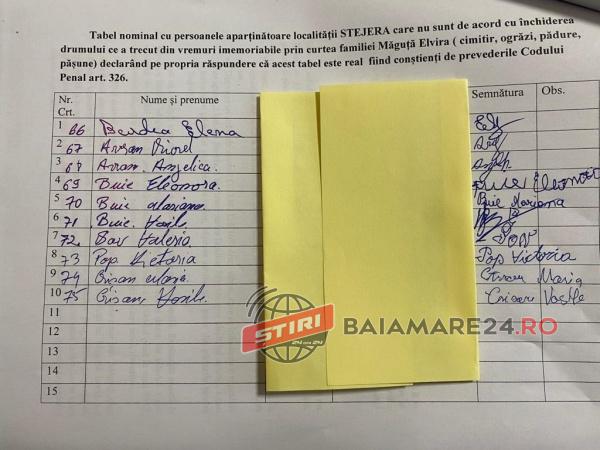 Tabel nominal cu persoanele aparținătoare localității STEJERA care nu sunt de acord cu închiderea
drumului ce a trecut din vremuri imemoriabile prin curtea familiei Măguță Elvira ( cimitir, ogrăzi, pădure,
pășune) declarând pe propria răspundere că acest tabel este real fiind conștienți de prevederile Codului
Penal art. 326.
Nr. Crt. Nume și prenume Semnătura Obs.
1 66 Elena
2 67 Avram Viorel
3 Avram Angelica
4 69 Buie Eleonora Buie Eleonora
5 70 Buie Mariana Buie Mariana
6 71 Buie Vasile
7 72 Valeria
8 73 Pop Victoria Pop Victoria
9 74 Crisan Maria Crisan Maria
10 75 Crisan Vasile Crisan Vasile
11
12
13
14
15
ȘTIRI
24 din 24
BAIAMARE24.RO